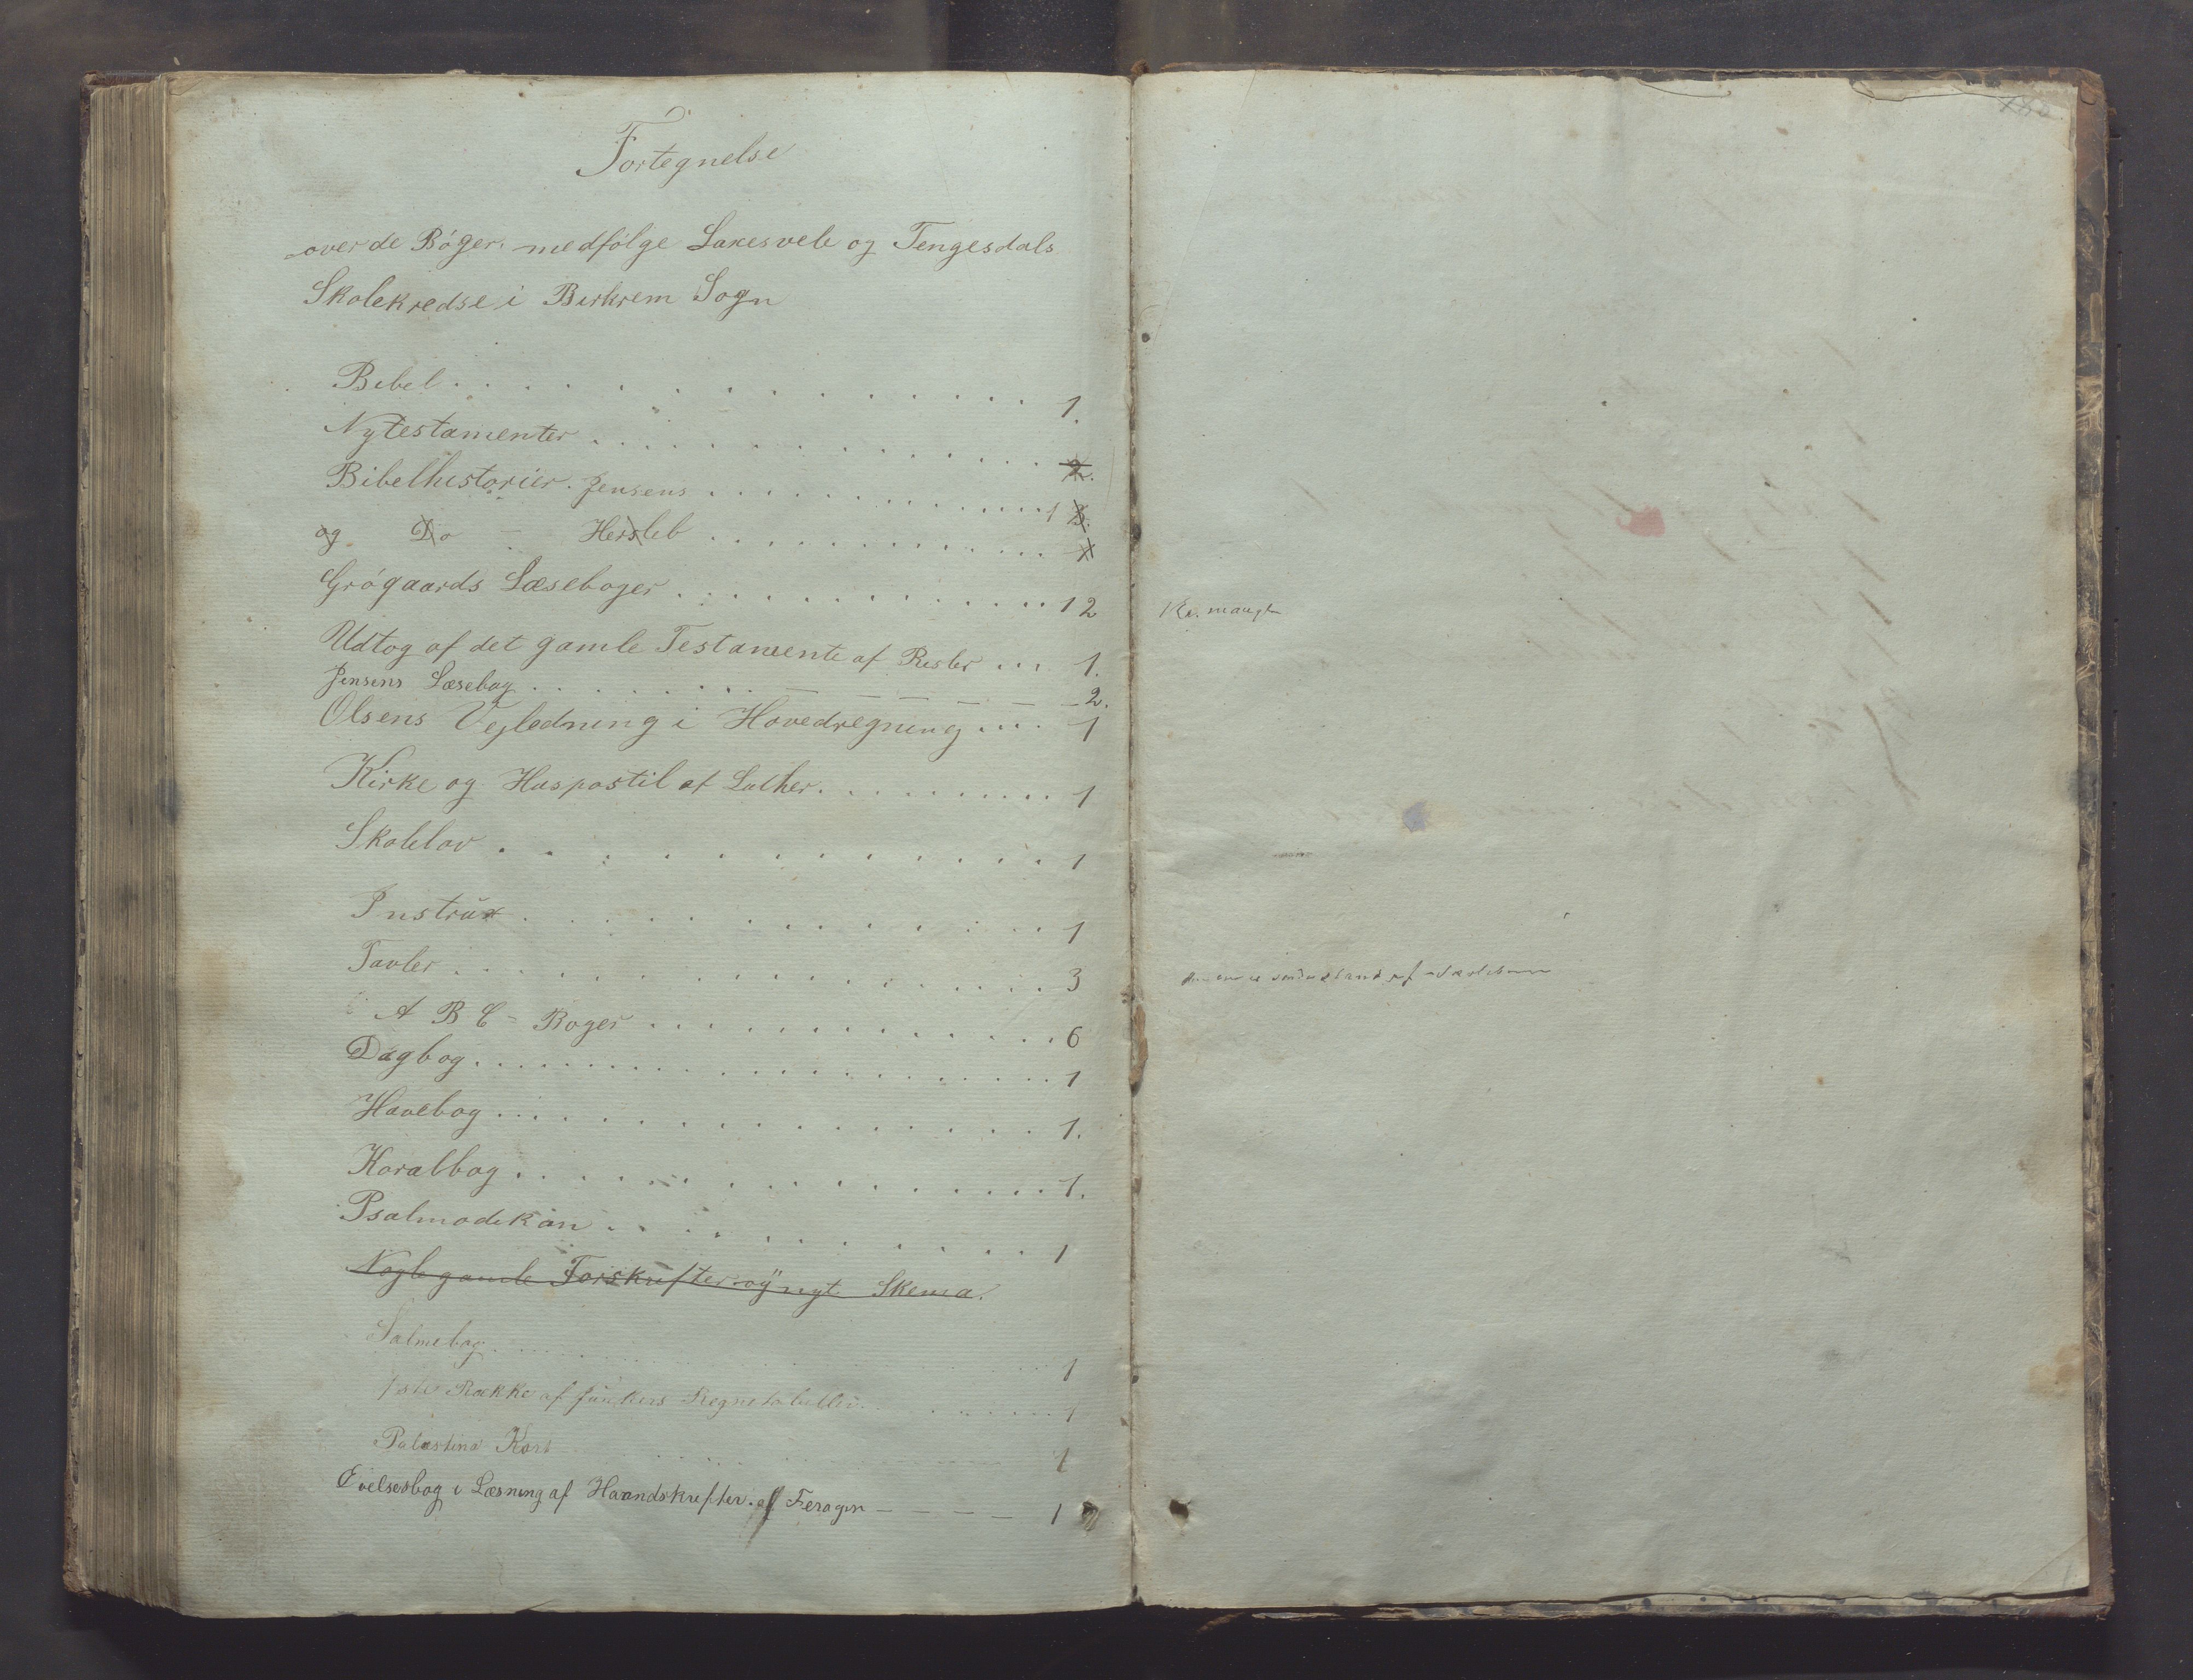 Fortegnelse
over de Bøger. medfølge Lakesvele og Tengesdals
Skolekredse i Birkrem Sogn
Bibel . . . . . . . . . . . . . 1.
Nytestamenter . . . . . . . . . . . . 2.
Bibelhistorier. Jensens . . . . . . . . . . . . 1 3.
og Do - Hersleb . . . . . . . . . . . . 1
Grógaards Læseboger . . . . . . . . . . . . 12
Udtog af det gamle Testamente af Risler ... 1.
Jensens Læsebog . . . . . . . . — — — — — — 2.
Olsens Vejledning i Hovedregning .... 1
Kirke og Huspostil af Luther . . . . . . . . . 1
Skolelov . . . . . . . . . . . . 1
Instrux . . . . . . . . . . . 1
Tavler . . . . . . . . . . . . . . 3
A B C - Boger . . . . . . . . . . . . . 6
Dagbog . . . . . . . . . . . . . . . . 1
Havebog . . . . . . . . . . . . . . 1.
Koralbog . . . . . . . . . . . . . . 1.
Psalmodikan . . . . . . . . . . . 1
Nogle gamle Forskrifter og nyt. Skema.
Salmebog . . . . . . . . . . . 1
1ste Række af Junkers Regnetabeller . . . . . . . 1
Palæstina Kart . . . . . . . . . 1
Øvelsesbog i Læsning af Haandskrifter. af Feragen — — — — 1
mangler
af